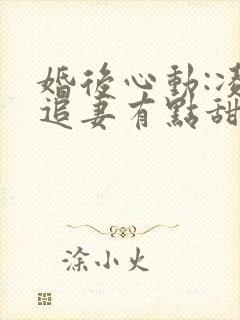 婚後心動:凌
追妻有點甜
涂小火